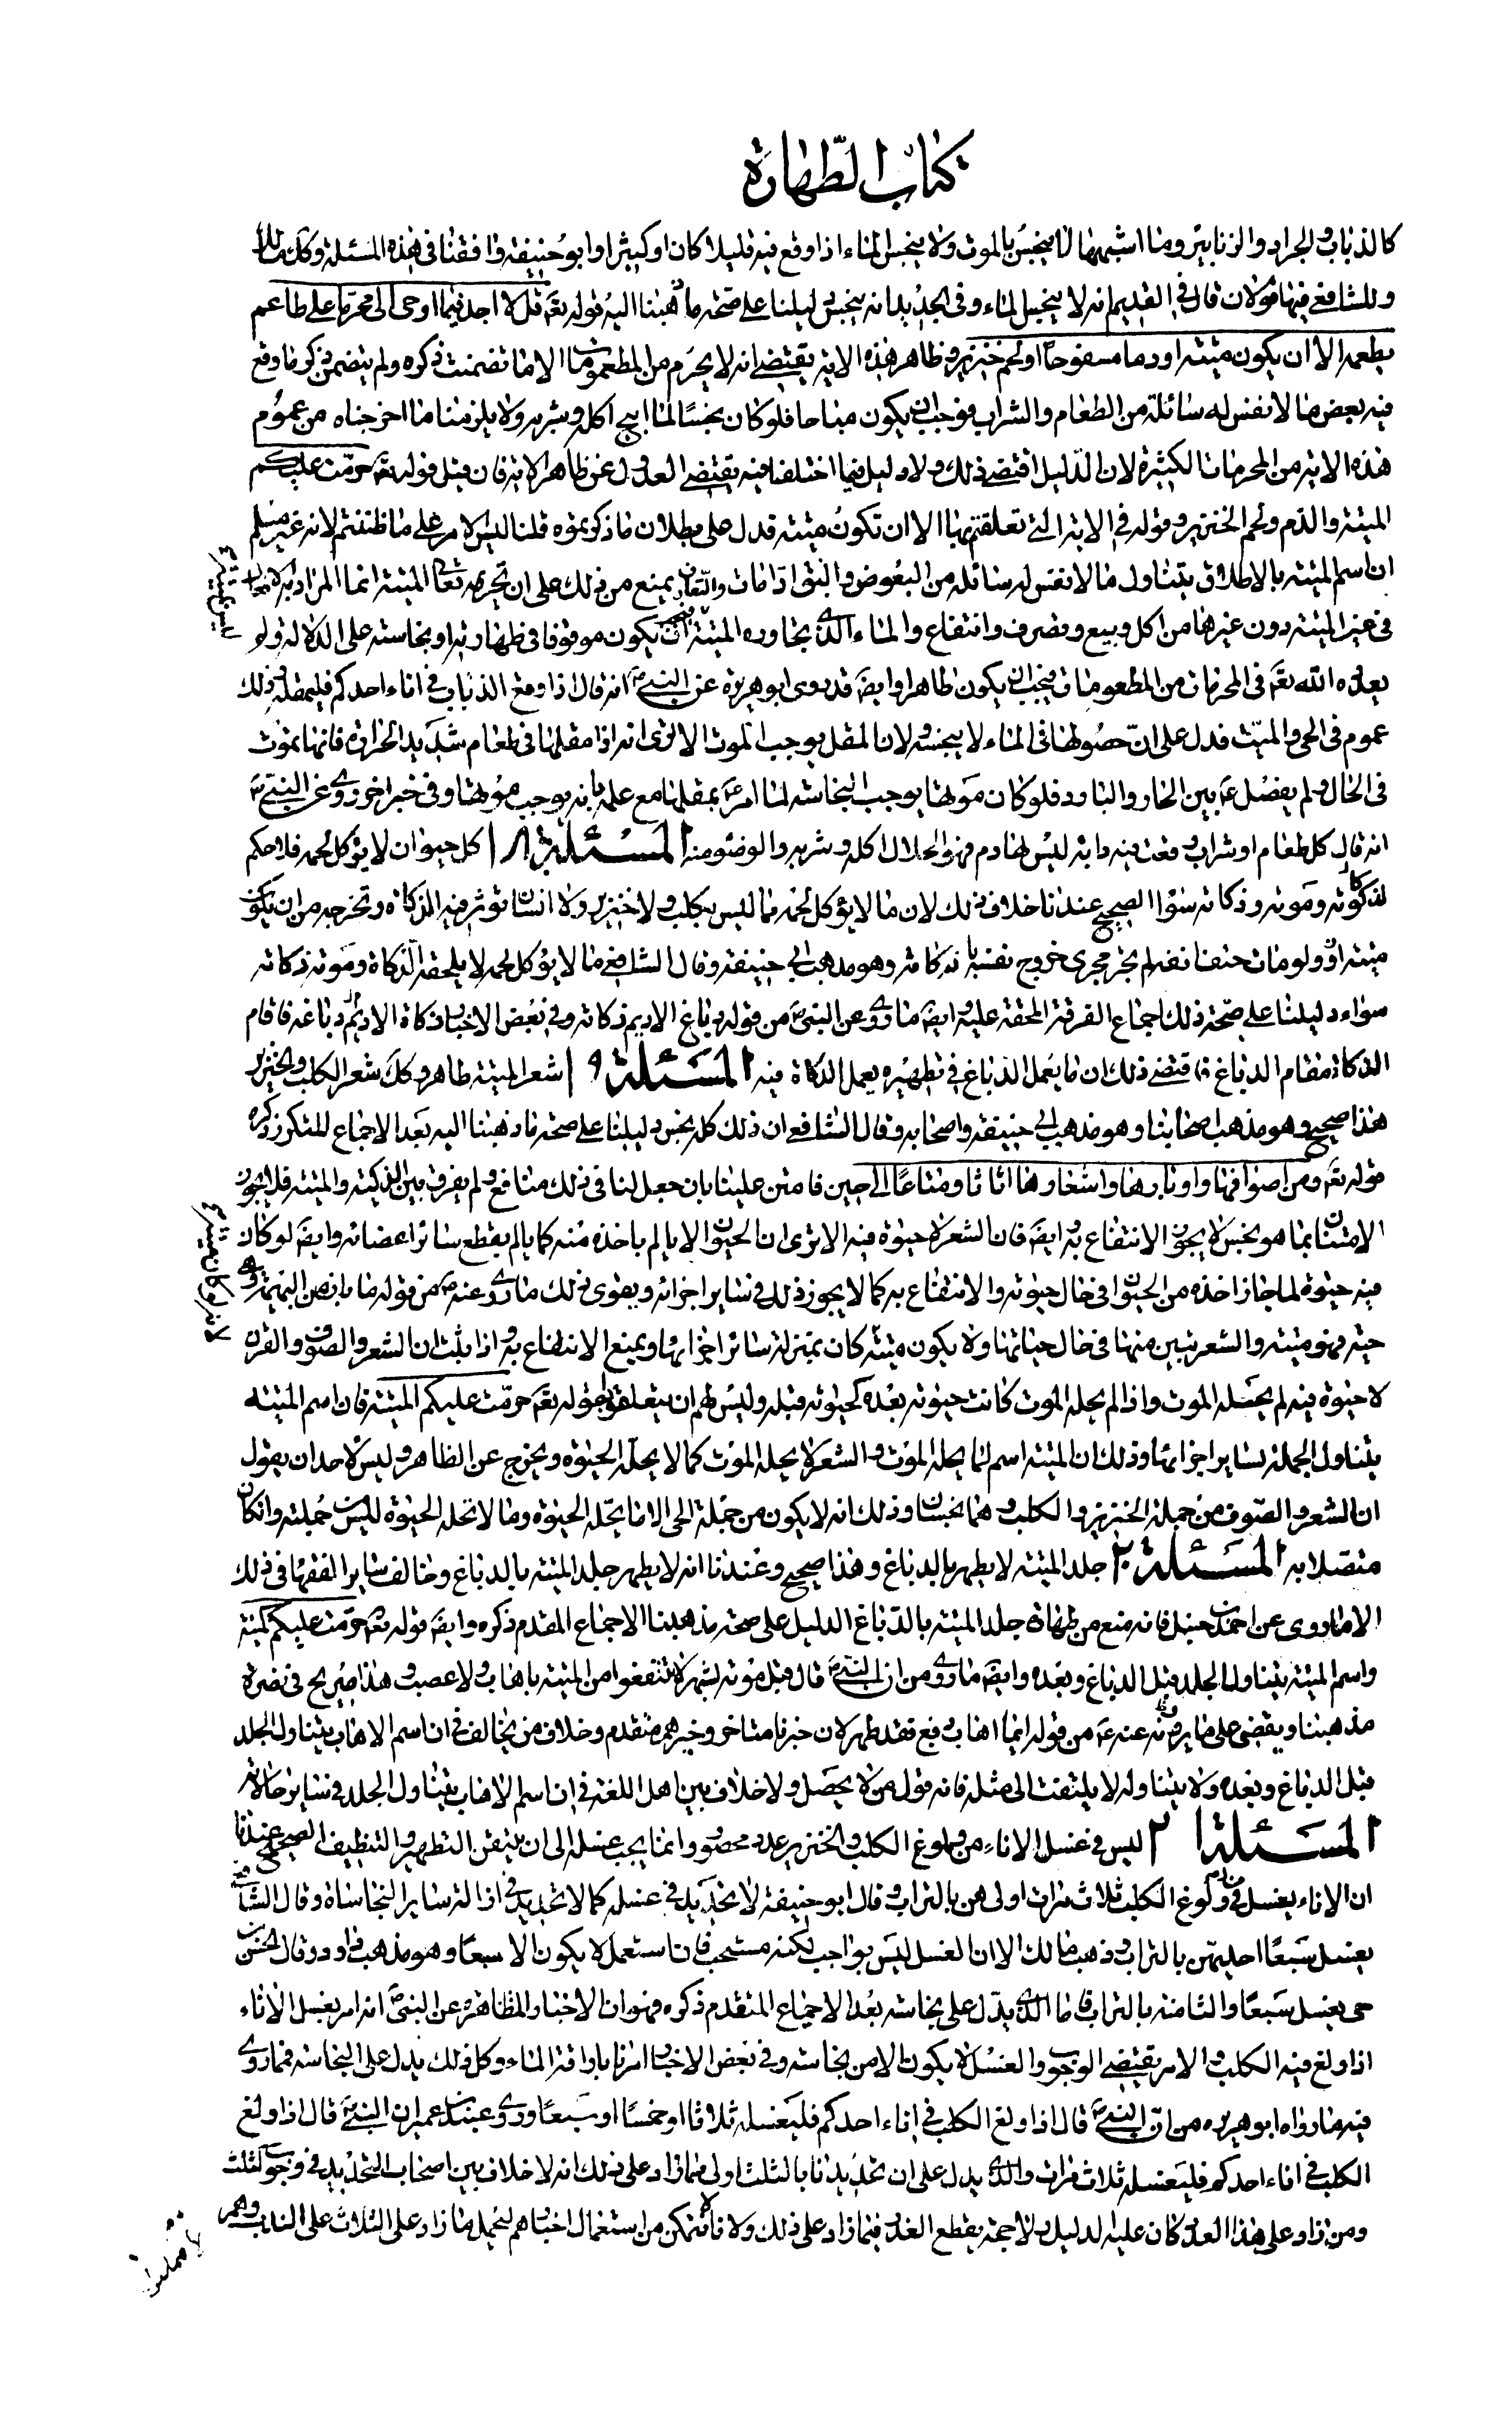 كتاب الطهارة
كالذباب والجراد والزنابير وما اشبهها لا ينجس بالموت ولا ينجس الماء اذا وقع فيه قليلا كان او كثيرا وابو حنيفة وافقنا في هذه المسئلة وكك مالك
وللشافعي فيها قولان قال في القديم انه لا ينجس الماء وفي الجديد انه ينجس دليلنا على صحة ما ذهبنا اليه قوله تعَ قل لا اجد فيما اوحى الى محرما على طاعم
يطعمه الا ان يكون ميتة او دما مسفوحا او لحم خنزير وظاهر هذه الاية يقتضي انه لا يحرم من المطعومات الا ما تضمنت ذكره ولم يتضمن ذكر ما وقع
فيه بعض ما لا نفس له سائلة من الطعام والشراب فوجب ان يكون مباحا فلو كان نجسا لما ابيح اكله وشربه ولا يلزمنا ما اخرجناه من عموم
هذه الاية من المحرمات الكثيرة لان الدليل اقتضى ذلك ولا دليل فيما اختلفنا فيه يقتضي العدول عن ظاهر الاية فان قيل قوله تعَ حرمت عليكم
الميتة والدم ولحم الخنزير وقوله في الاية التي تعلقتم بها الا ان تكون ميتة قد دل على بطلان ما ذكرتموه قلنا ليس الامر على ما ظننتم لانه غير مسلم
ان اسم الميتة بالاطلاق يتناول ما لا نفس له سائلة من البعوض والبق اذا مات والتعارف يمنع من ذلك على ان تحريمه تعالى الميتة انما المراد به الافعال
في عين الميتة دون غيرها من اكل وبيع وتصرف وانتفاع والماء الذي تجاوره الميتة يجب ان يكون موقوفا في طهارته او نجاسته على الدلالة ولو
يعده الله تعَ في المحرمات من المطعومات فيجب ان يكون طاهرا وايضَ قد روى ابو هريرة عن النبي ص انه قال اذا وقع الذباب في اناء احدكم فليمقله وذلك
عموم في الحي والميت فدل على ان حصولها في الماء لا ينجسه ولان المقل يوجب الموت الا ترى انه اذا مقلها في طعام شديد الحرارة فانها تموت
في الحال ولم يفصل عَ بين الحار والبارد فلو كان موتها يوجب النجاسة لما امر عَ بمقلها مع علمه بانه يوجب موتها وفي خبر اخر روى عن النبي ص
انه قال كل طعام او شراب وقعت فيه دابة ليس لها دم فهو الحلال اكله وشربه والوضوء منه المسئلة ١٨ كل حيوان لا يؤكل لحمه فلا حكم
لذكاته وموته وذكاته سواء الصحيح عندنا خلاف ذلك لان ما لا يؤكل لحمه مما ليس بكلب ولا خنزير ولا انسان تؤثر فيه الذكاة وتخرجه من ان يكون
ميتة ولو مات حتف انفه لم يجر مجرى خروج نفسه بالذكاة وهو مذهب ابي حنيفة وقال الشافعي ما لا يؤكل لحمه لا يلحقه الذكاة وموته وذكاته
سواء دليلنا على صحة ذلك اجماع الفرقة المحقة عليه وايضَ ما روى عن النبي ص من قوله دباغ الاديم ذكاته وفي بعض الاخبار ذكاة الاديم دباغه فاقام
الذكاة مقام الدباغ فاقتضى ذلك ان ما يعمل الدباغ في تطهيره يعمل الذكاة فيه المسئلة ١٩ شعر الميتة طاهر وكك شعر الكلب والخنزير
هذا صحيح وهو مذهب اصحابنا وهو مذهب ابي حنيفة واصحابه وقال الشافعي ان ذلك كله نجس دليلنا على صحة ما ذهبنا اليه بعد الاجماع المتكرر ذكره
قوله تعَ ومن اصوافها واوبارها واشعارها اثاثا ومتاعا الى حين فامتن علينا بان جعل لنا في ذلك منافع ولم يفرق بين الذكية والميتة فلا يجوز
الامتنان بما هو نجس لا يجوز الانتفاع به وايضَ فان الشعر لا حيوة فيه الا ترى ان الحيوان لا يالم باخذه منه كما يالم بقطع سائر اعضائه وايضَ لو كان
فيه حيوة لما جاز اخذه من الحيوان في حال حيوته والانتفاع به كما لا يجوز ذلك في سائر اجزائه ويقوى ذلك ما روى عنه ص من قوله ما بان من البهيمة وهي
حية فهو ميتة والشعر يبين منها في حال حياتها ولا يكون ميتة كان بمنزلة سائر اجزائها ويمنع الانتفاع به واذا ثبت ان الشعر والصوف والقرن
لا حيوة فيه لم يحله الموت واذا لم يحله الموت كانت حيوته بعده كحيوته قبله وليس لهم ان يتعلقوا بقوله تعَ حرمت عليكم الميتة فان اسم الميتة
يتناول الجملة بسائر اجزائها وذلك ان الميتة اسم لما يحله الموت والشعر لا يحله الموت كما لا يحله الحيوة ويخرج عن الظاهر وليس لاحد ان يقول
ان الشعر والصوف من جملة الخنزير والكلب وهما نجسان وذلك انه لا يكون من جملة الحي الا ما تحله الحيوة وما لا تحله الحيوة ليس من جملته وان كان
متصلا به المسئلة ٢٠ جلد الميتة لا يطهر بالدباغ وهذا صحيح وعندنا انه لا يطهر جلد الميتة بالدباغ وخالف سائر الفقهاء في ذلك
الا ما روى عن احمد بن حنبل فانه منع من طهارة جلد الميتة بالدباغ الدليل على صحة مذهبنا الاجماع المقدم ذكره وايضَ قوله تعَ حرمت عليكم الميتة
واسم الميتة يتناول الجلد قبل الدباغ وبعده وايضَ ما روى من ان النبي ص قال قبل موته بشهر لا تنتفعوا من الميتة باهاب ولا عصب وهذا صريح في نصرة
مذهبنا ويقضى على ما يروونه عنه عَ من قوله ايما اهاب دبغ فقد طهر لان خبرنا متاخر وخبرهم متقدم وخلاف من يخالف في ان اسم الاهاب يتناول الجلد
قبل الدباغ وبعده ولا يتناوله لا يلتفت الى مثله فانه قول من لا يحصل ولا خلاف بين اهل اللغة في ان اسم الاهاب يتناول الجلد في سائر حالاته
المسئلة ٢١ ليس في غسل الاناء من ولوغ الكلب والخنزير عدد محصور وانما يجب غسله الى ان يتيقن التطهير والتنظيف الصحيح عندنا
ان الاناء يغسل من ولوغ الكلب ثلاث مرات اولى هن بالتراب وقال ابو حنيفة لا تحديد في غسله كما لا تحديد في ازالة سائر النجاسات وقال الشافعي
يغسل سبعا احديهن بالتراب وذهب مالك الا ان الغسل ليس بواجب لكنه مستحب فان استعمل لا يكون الا سبعا وهو مذهب داود وقال الحسن بن
حي يغسل سبعا والثامنة بالتراب فاما الذي يدل على نجاسته بعد الاجماع المتقدم ذكره فهو ان الاخبار المتظاهرة عن النبي ص انه امر بغسل الاناء
اذا ولغ فيه الكلب والامر يقتضي الوجوب والغسل لا يكون الا من نجاسة وفي بعض الاخبار امرنا باراقة الماء وكل ذلك يدل على النجاسة فما روى
فيه ما رواه ابو هريرة من ان النبي ص قال اذا ولغ الكلب في اناء احدكم فليغسله ثلاثا او خمسا او سبعا وروى عبيد بن عمير ان النبي ص قال اذا ولغ
الكلب في اناء احدكم فليغسله ثلاث مرات والذي يدل على ان تحديدنا بالثلث اولى مما زاد على ذلك انه لا خلاف بين اصحاب التحديد في وجوب الثلث
ومن زاد على هذا العدد كان عليه الدليل ولا حجة يقطع العذر فيما زاد على ذلك ولانا نتمكن من استعمال اخبارهم بحمل ما زاد على الثلاث على الندب وهم